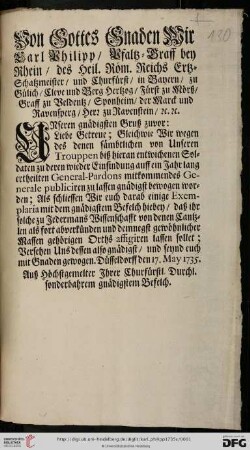 Von Gottes Gnaden Wir
Carl Philipp / Pfaltz-Graff bey
Rhein / des Heil. Röm. Reichs Ertz-
Schatzmeister / und Churfürst / in Bayern / zu
Gülich / Cleve und Berg Hertzog / Fürst zu Mörß /
Graff zu Veldentz / Sponheim / der Marck und
Ravensperg / Herr zu Ravenstein / ꝛc. ꝛc.
UNserem gnädigsten Gruß zuvor;
Liebe Getreue; Gleichwie Wir wegen
des denen sämbtlichen von Unseren
Trouppen biß hieran entwichenen Sol-
daten zu deren wieder Einfindung auff ein Jahr lang
ertheilten General-Pardons mitkommendes Ge-
nerale publiciren zu lassen gnädigst bewogen wor-
den; Als schliessen Wir euch darab einige Exem-
plaria mit dem gnädigstem Befelch hiebey / daß ihr
solche zu Jedermans Wissenschafft von denen Cantz-
len als fort abverkünden und demnegst gewöhnlicher
Massen gehörigen Orths affigiren lassen sollet;
Versehen Uns dessen also gnädigst / und seynd euch
mit Gnaden gewogen. Düsseldorff den 17. May 1735.
Auß Höchstgemelter Ihrer Churfürstl. Durchl.
sonderbahrem gnädigstem Befelch.
130
UNIVERSITÄTS-BIBLIOTHEK HEIDELBERG
Gefördert durch die DFG